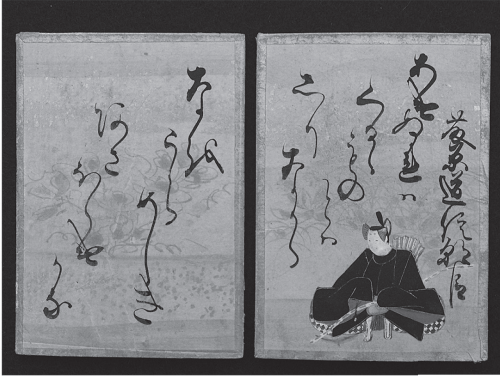 藤原道信朝臣
あけぬれハ
くるゝ
ものとハ
しりなから
なを
うら
めしき
あさ
ほらけ
かな